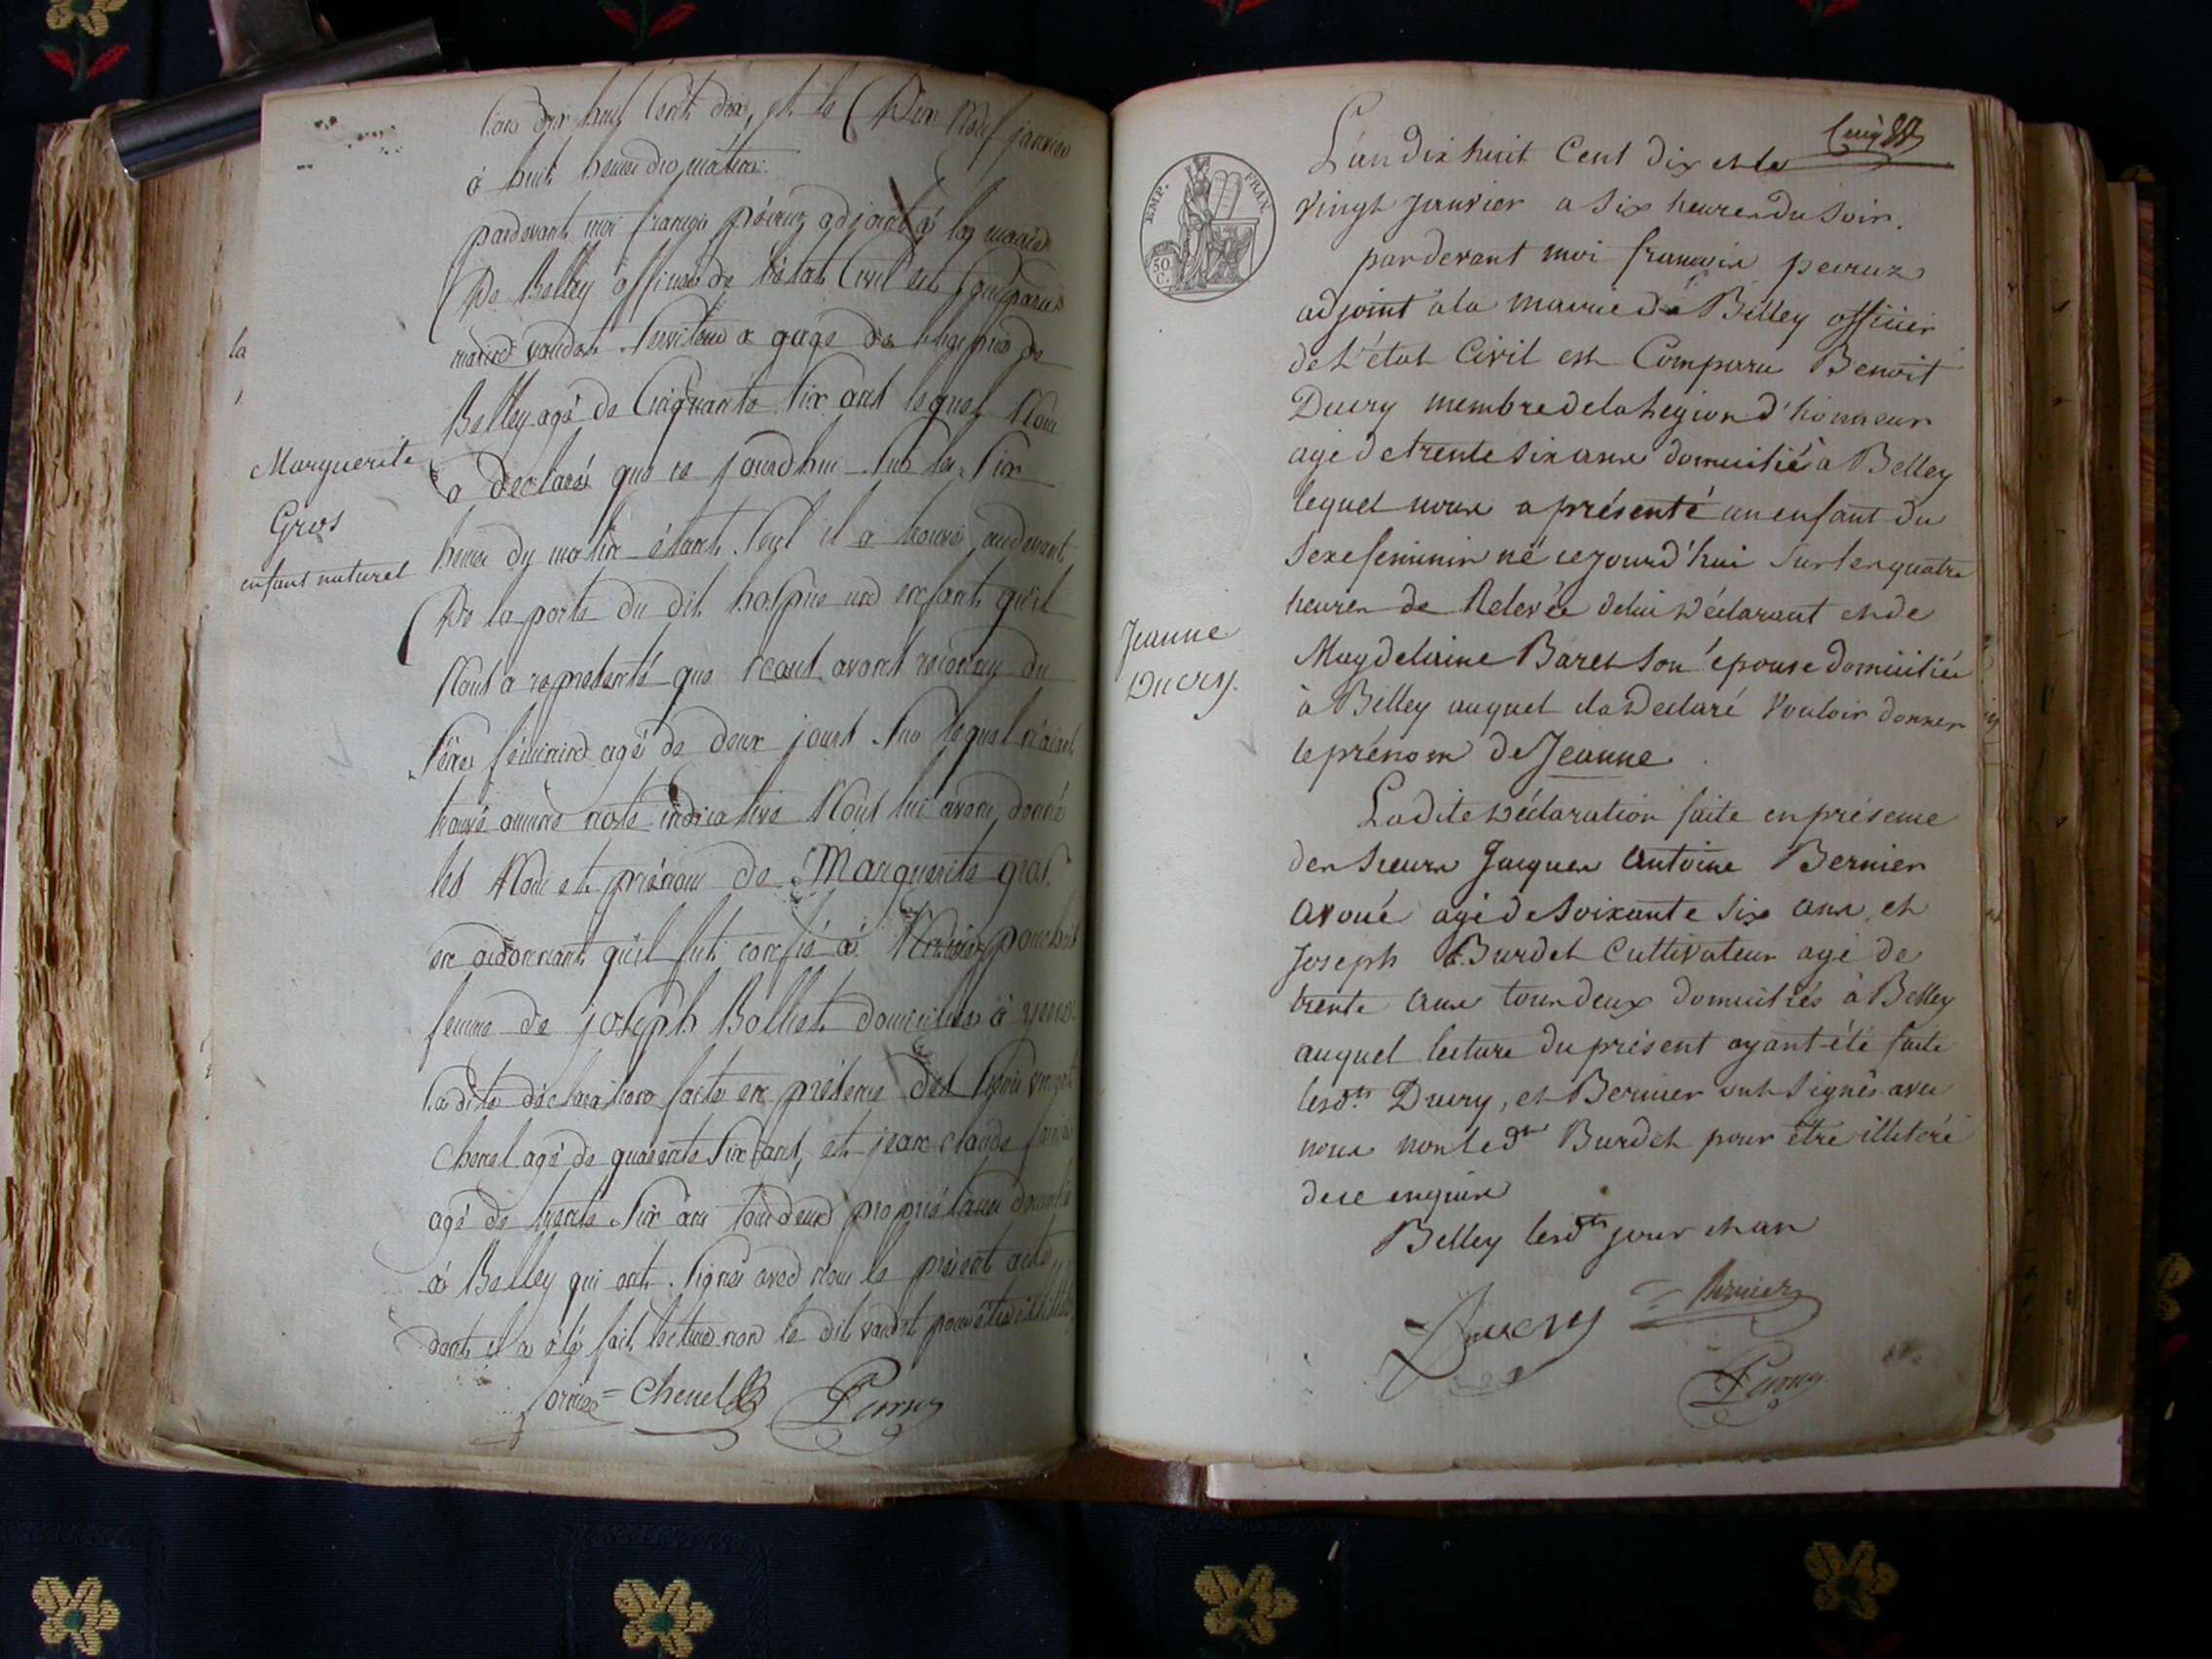 L'an dix huit Cent dix, et le Dix Neuf janvier
à huit heures du matin:
pardevant moi françois péiruz adjoint à la mairie
De Belley officier de l'état Civil est Comparu
vaudet Serviteur a gage de l'hospice de
Belley agé de Cinquante Six ans lequel Nous
a declaré que ce jourdhui Sur les Six
la
Marguerite
Gros
enfant naturel
heures du matin étant Seul il a trouvé audevant
De la porte du dit hospice un enfant qu'il
Nous a representé que nous avons reconnu du
Séxe féminin agé de deux jours Sur lequel n'aiant
trouvé aucune note indicative Nous lui avons donné
les Nom et prénom de Marguerite gros
en ordonnant qu'il fut confié à
femme de joseph Bolliet domiciliée à
La dite déclaration faite en présence des Sieurs
Chenel agé de quarente Six ans, et jean claude
agé de trente Six ans tous deux propriétaires domiciliés
à Belley qui ont Signés avec nous le présent acte
dont il a été fait lecture non le dit vaudet pour être illitéré
Chenel Peiruz
L'an dix huit Cent dix et le
Vingt Janvier a Six heures du Soir.
EMP. FRAN.
50 C.
pardevant moi francois peiruz
adjoint a la mairie de Belley officier
de L'état Civil est Comparu Benoit
Ducry membre de la Legion d'honneur
agé de trente six ans domicilié à Belley
lequel nous a présenté un enfant du
Sexe feminin né cejourd'hui Sur les quatre
heures de Relevée delui Déclarant et de
Jeanne
Ducry.
Magdelaine Baret Son épouse domiciliée
à Belley auquel ila Declaré Vouloir donner
le prénom de Jeanne
Ladite Déclaration faite en présence
des Sieurs Jacques Antoine Bernier
avoué agé de Soixante Six ans, et
Joseph Burdet Cultivateur agé de
trente ans tous deux domiciliés à Belley
auquel lecture du présent ayant été faite
lesdts Ducry, et Bernier ont Signés avec
nous non le dt Burdet pour être illiteré
de ce enquis
Belley lesdts jour et an
Ducry Bernier
Peiruz